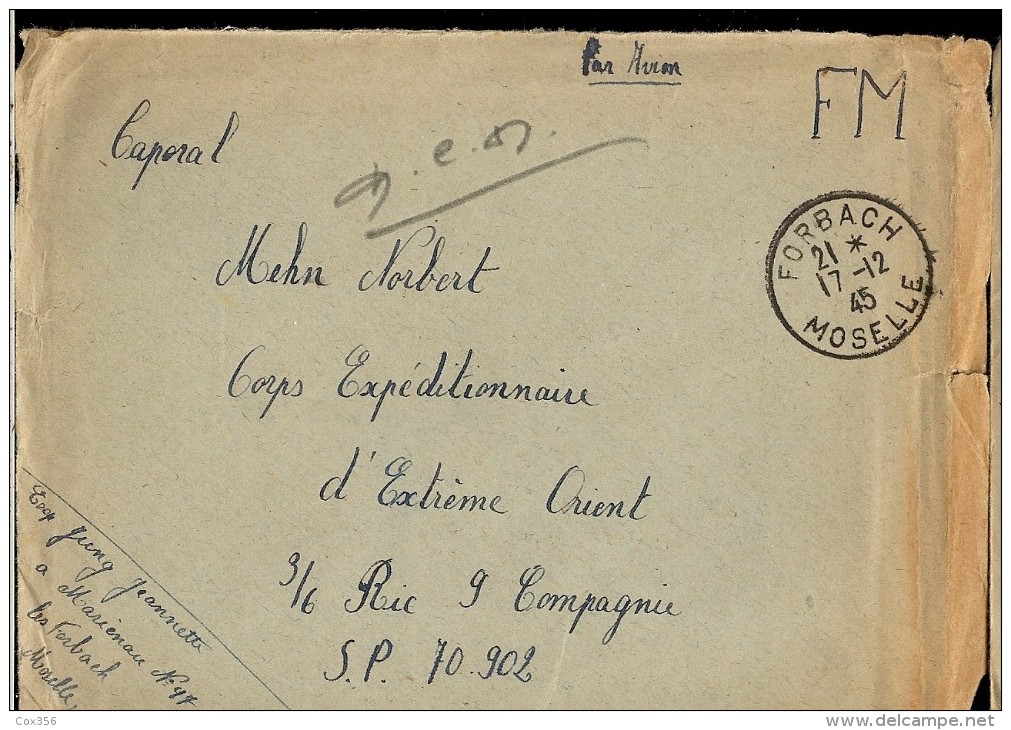 Par Avion
FM
Caporal
FORBACH
21 *
17-12
45
MOSELLE
Mehn Norbert
Corps Expéditionnaire
d'Extrême Orient
3/6 Ric 9 Compagnie
S.P. 70.902
Exp Jung Jeannette
a Marienau N° 47
les Forbach
Moselle
Cox356
delcampe.net